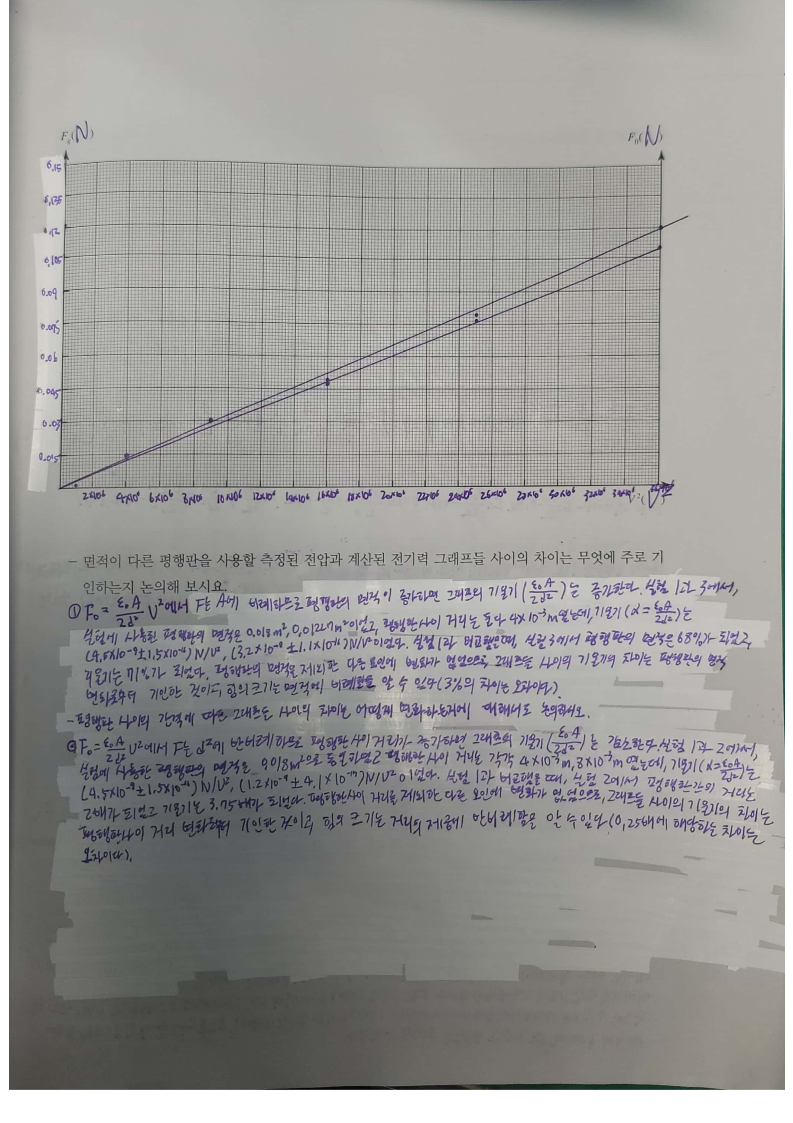 Fe(N)
F0(N)
0.15
0.135
0.12
0.105
0.09
0.075
0.06
0.045
0.03
0.015
2×10⁶ 4×10⁶ 6×10⁶ 8×10⁶ 10×10⁶ 12×10⁶ 14×10⁶ 16×10⁶ 18×10⁶ 20×10⁶ 22×10⁶ 24×10⁶ 26×10⁶ 28×10⁶ 30×10⁶ 32×10⁶ 34×10⁶
- 면적이 다른 평행판을 사용할 측정된 전압과 계산된 전기력 그래프들 사이의 차이는 무엇에 주로 기
인하는지 논의해 보시요.
① F₀ = ε₀A/2d² V²에서 F는 A에 비례하므로 평행판의 면적이 증가하면 그래프의 기울기(ε₀A/2d²)는 증가한다. 실험 1과 3에서,
실험에 사용된 평행판의 면적은 0.018m², 0.01227m²이었고, 평행판 사이 거리는 둘다 4×10⁻³m였는데, 기울기(α=ε₀A/2d²)는
(4.5×10⁻⁹±1.5×10⁻¹¹)N/V², (3.2×10⁻⁹±1.1×10⁻¹¹)N/V²이었다. 실험 1과 비교했을때, 실험 3에서 평행판의 면적은 68%가 되었고
기울기는 71%가 되었다. 평행판의 면적을 제외한 다른 요인에 변화가 없었으므로, 그래프들 사이의 기울기의 차이는 평행판의 면적
변화로부터 기인한 것이고, 힘의 크기는 면적에 비례함을 알 수 있다(3%의 차이는 오차이다).
- 평행판 사이의 간격에 따른 그래프들 사이의 차이는 어떻게 변화하는가에 대해서도 논의하시오.
② F₀=ε₀A/2d² V²에서 F는 d²에 반비례하므로 평행판 사이 거리가 증가하면 그래프의 기울기(ε₀A/2d²)는 감소한다. 실험 1과 2에서,
실험에 사용한 평행판의 면적은 0.018m²으로 동일하였고 평행판 사이 거리는 각각 4×10⁻³m, 8×10⁻³m였는데, 기울기(α=ε₀A/2d²)는
(4.5×10⁻⁹±1.5×10⁻¹¹)N/V², (1.2×10⁻⁹±4.1×10⁻¹¹)N/V²이었다. 실험 1과 비교했을 때, 실험 2에서 평행판간의 거리는
2배가 되었고 기울기는 3.75배가 되었다. 평행판사이 거리를 제외한 다른 요인에 변화가 없었으므로, 그래프들 사이의 기울기의 차이는
평행판사이 거리 변화로부터 기인한 것이고 힘의 크기는 거리의 제곱에 반비례함을 알 수 있다(0.25배에 해당하는 차이는
오차이다).